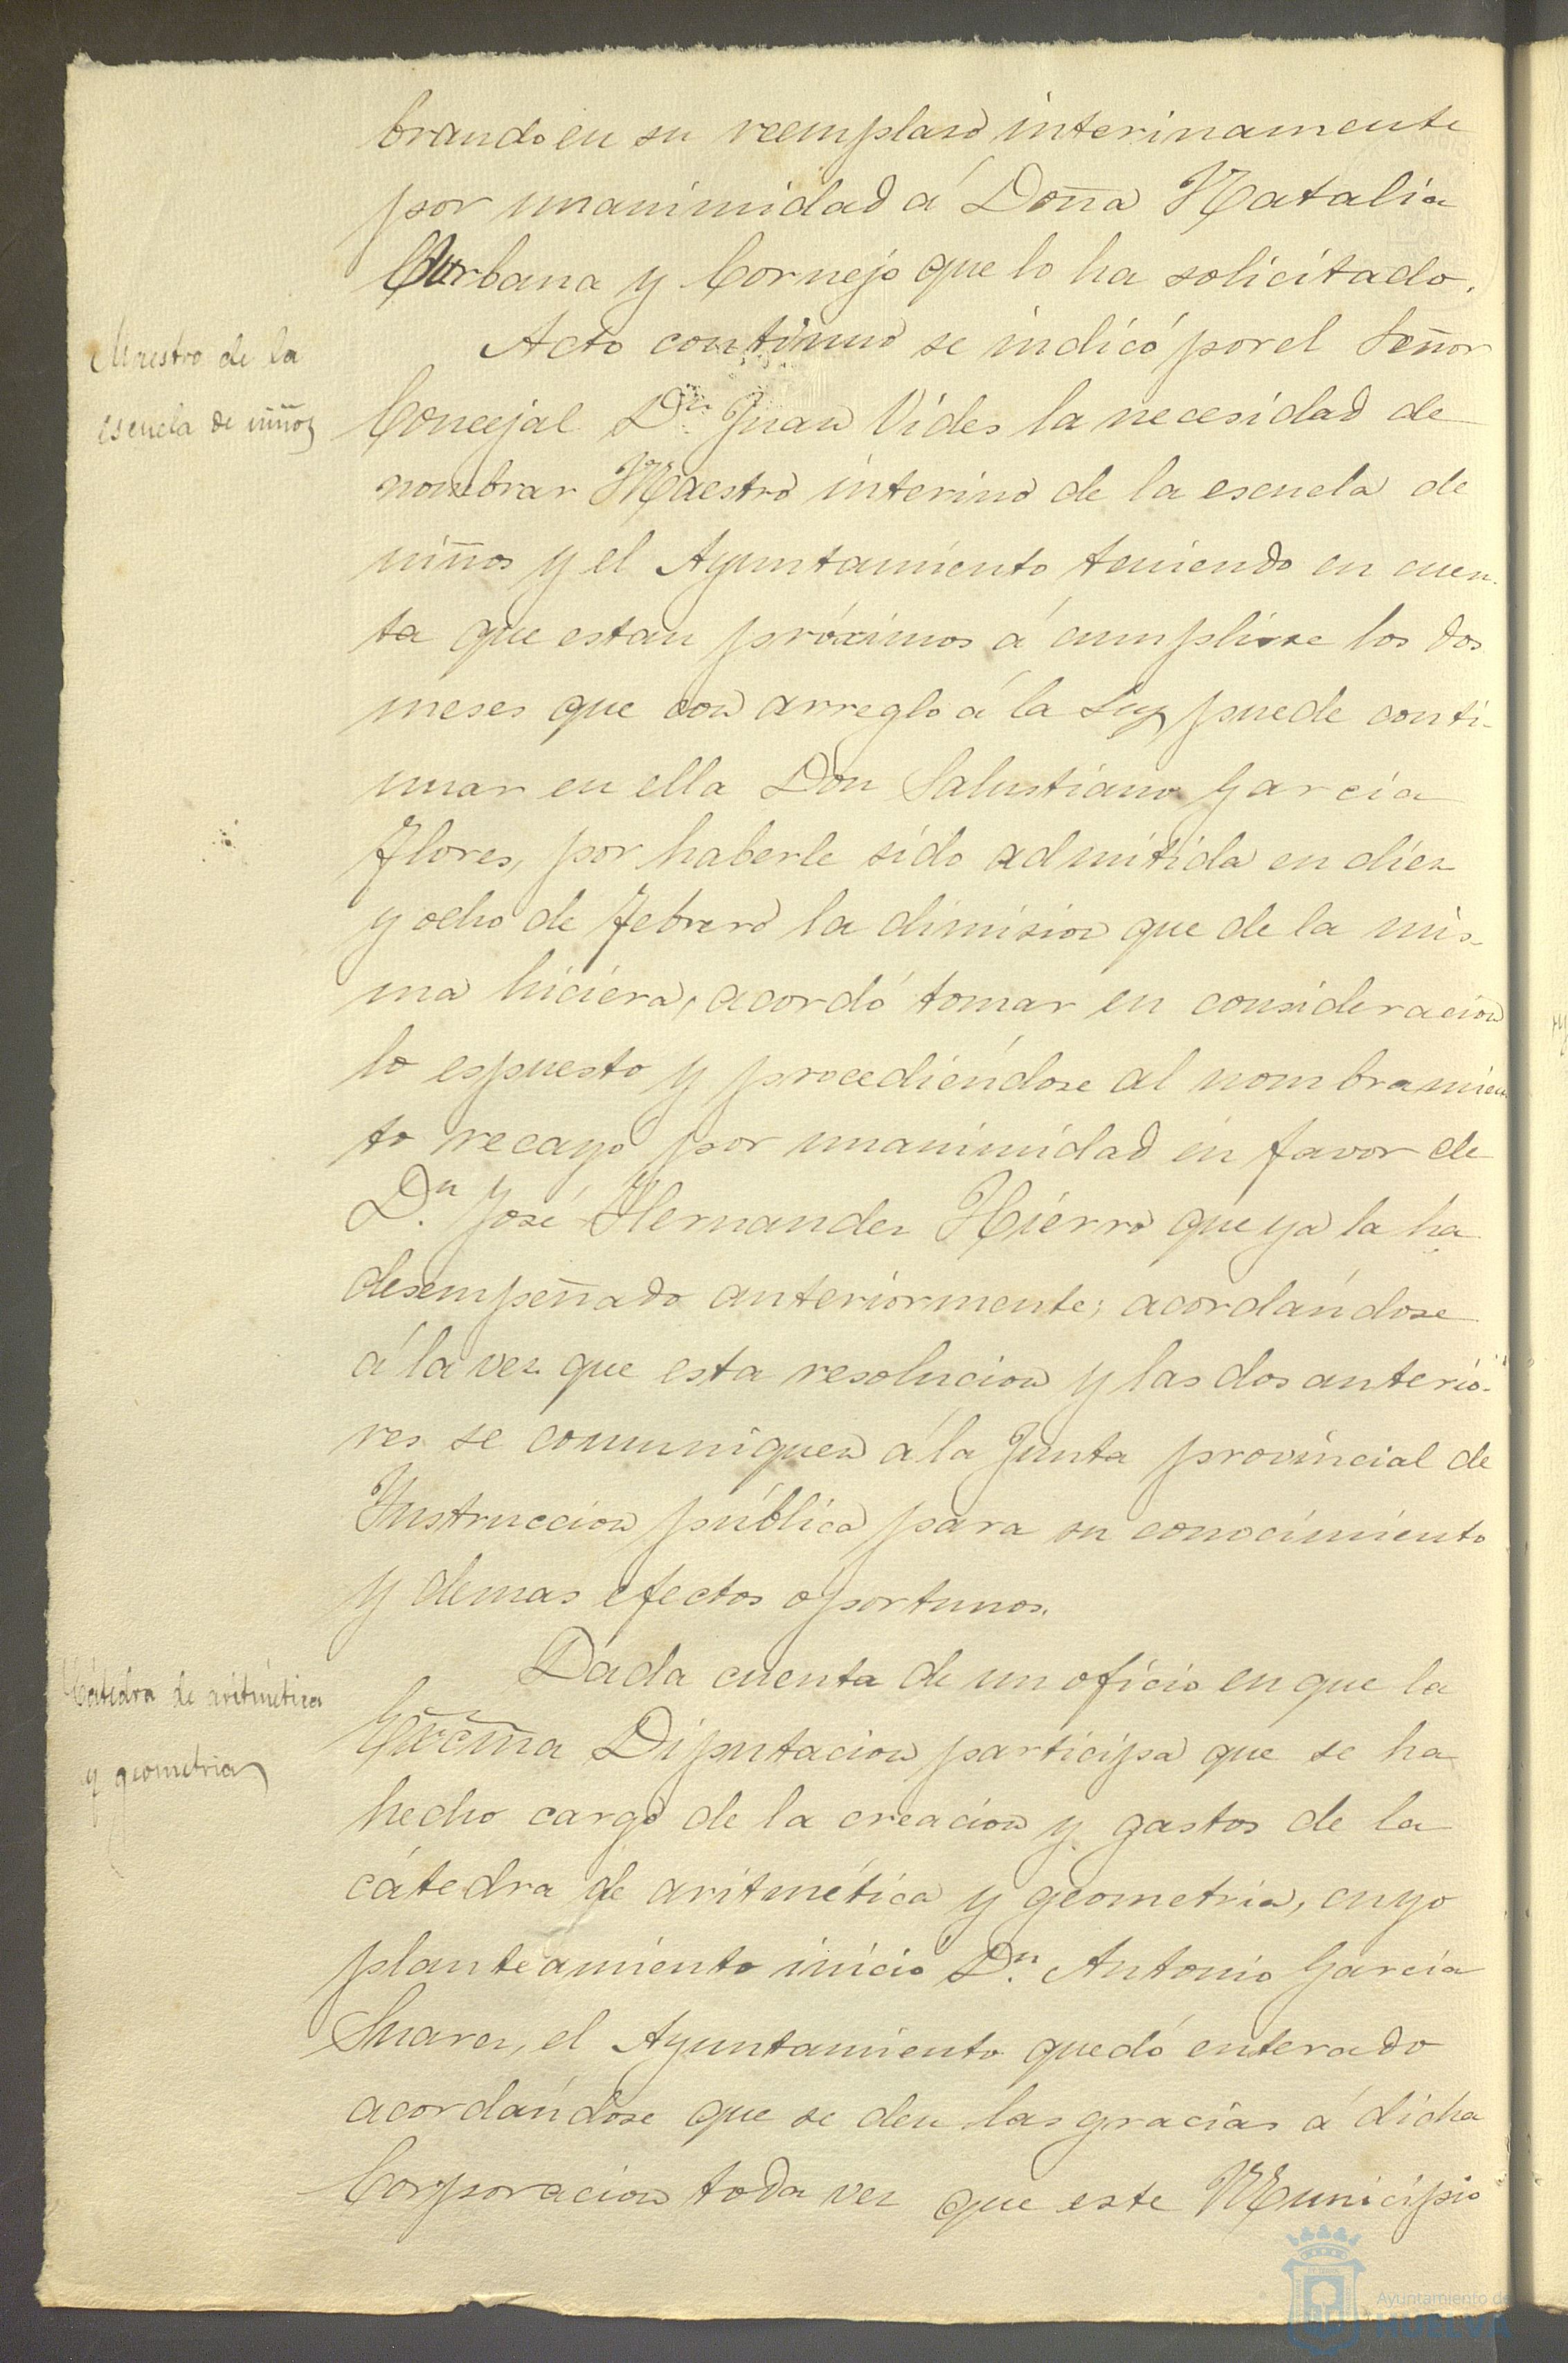 brando en su reemplazo interinamente
por unanimidad á Doña Natalia
Curbana y Cornejo que lo ha solicitado.
Maestro de la
escuela de niños
Acto continuo se indicó por el Señor
Concejal Dn. Juan Vides la necesidad de
nombrar Maestro interino de la escuela de
niños y el Ayuntamiento teniendo en cuen-
ta que estan próximos á cumplirse los dos
meses que con arreglo á la Ley puede conti-
nuar en ella Don Salustiano Garcia
Flores, por haberle sido admitida en diez
y ocho de Febrero la dimision que de la mis-
ma hiciera, acordó tomar en consideracion
lo espuesto y procediéndose al nombramien-
to recayó por unanimidad en favor de
Dn. José Hernandez Hierro que ya la ha
desempeñado anteriormente; acordándose
á la vez que esta resolucion y las dos anterio-
res se comuniquen á la Junta provincial de
Instruccion pública para su conocimiento
y demas efectos oportunos.
Cátedra de aritmética
y geometria
Dada cuenta de un oficio en que la
Excma Diputacion participa que se ha
hecho cargo de la creacion y gastos de la
cátedra de aritmética y geometria, cuyo
planteamiento inició Dn. Antonio Garcia
Suarez, el Ayuntamiento quedó enterado
acordándose que se den las gracias á dicha
Corporacion toda vez que este Municipio
Ayuntamiento de
HUELVA